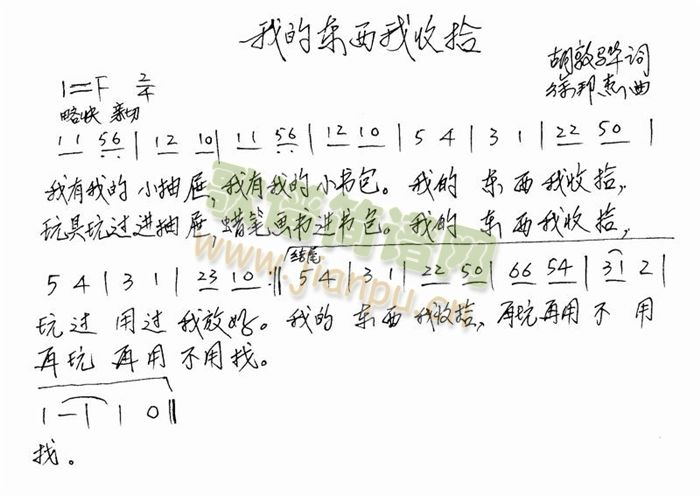 我的东西我收拾
胡敦骅词
1=F 2/4
徐邦杰曲
略快 亲切
11 56 | 12 10 | 11 56 | 12 10 | 5 4 | 3 1 | 22 50 |
我有我的小抽屉,我有我的小书包。我的 东西我收拾,
玩具玩过进抽屉,蜡笔画书进书包。我的 东西我收拾,
结尾
5 4 | 3 1 | 23 10 :‖ 5 4 | 3 1 | 22 50 | 66 54 | 31 2 |
玩过 用过 我放好。我的 东西我收拾,再玩再用 不 用
再玩 再用 不用找。
1 - | 1 0 ‖
找。
歌谱简谱网
www.jianpu.cn